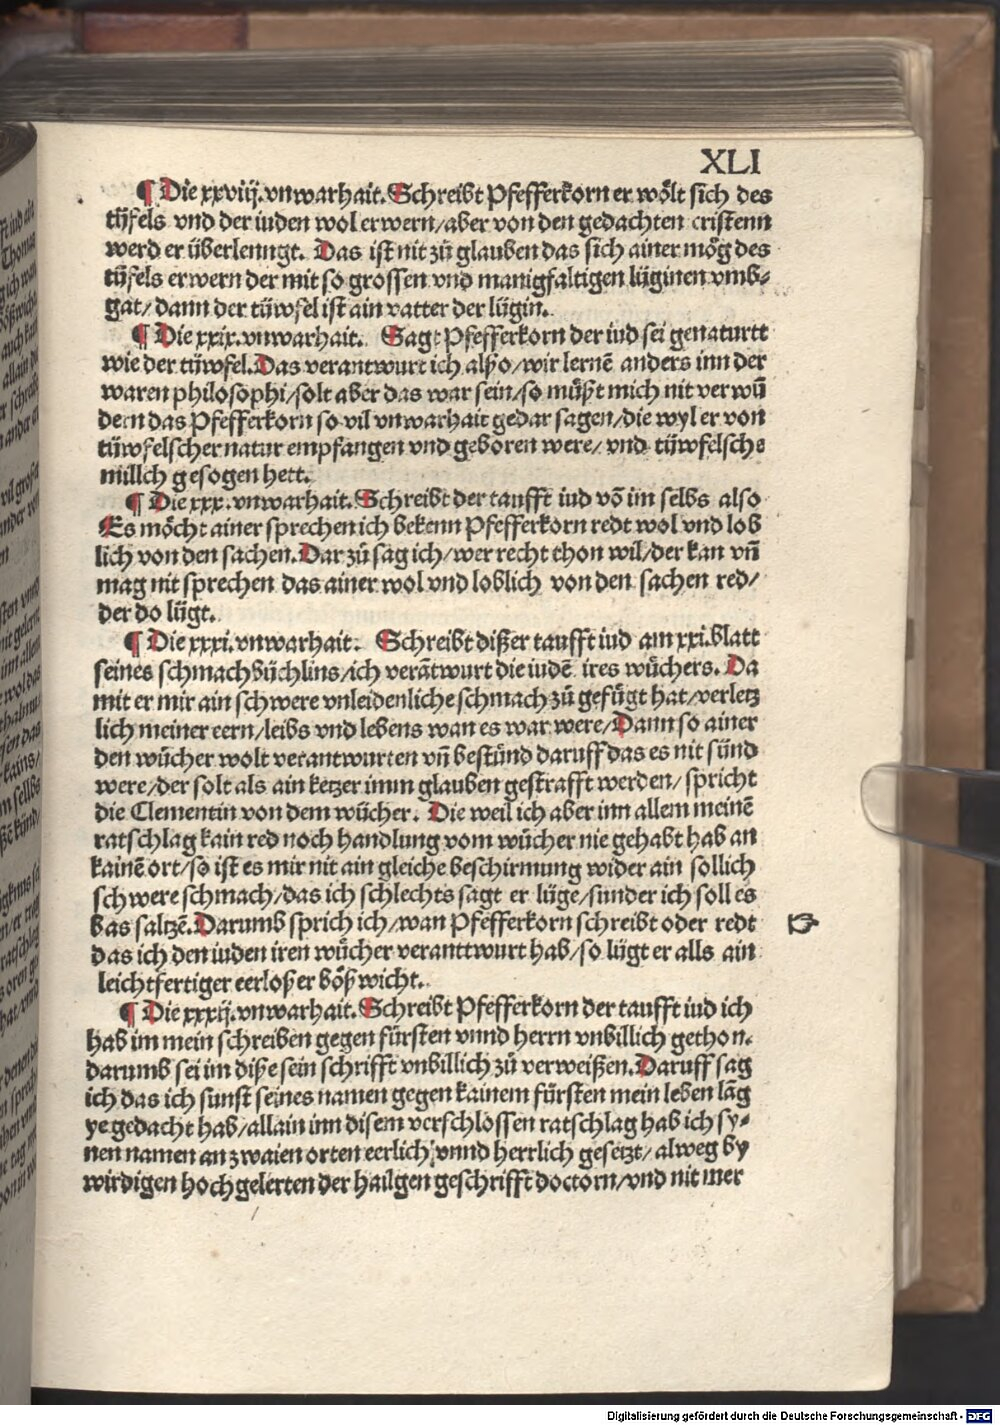 XLI
¶ Die xxviij. vnwarhait. Schreibt Pfefferkorn er wőlt sich des
tüfels vnd der iuden wol erwern/aber von den gedachten cristenn
werd er überlenngt. Das ist nit zů glauben das sich ainer mőg des
tüfels erwern der mit so grossen vnd manigfaltigen lüginen vmb⸗
gat/ dann der tüwfel ist ain vatter der lügin.
¶ Die xxix. vnwarhait. Sagt Pfefferkorn der iud sei genaturtt
wie der tüwfel. Das verantwurt ich alßo/wir lernē anders inn der
waren philosophi/solt aber das war sein/so můßt mich nit verwū
dern das Pfefferkorn so vil vnwarhait gedar sagen/die wyl er von
tüwfelscher natur empfangen vnd geboren were/ vnd tüwfelsche
millch gesogen hett.
¶ Die xxx. vnwarhait. Schreibt der taufft iud vō im selbs also
Es mőcht ainer sprechen ich bekenn Pfefferkorn redt wol vnd lob
lich von den sachen. Dar zů sag ich/wer recht thon wil/der kan vn̄
mag nit sprechen das ainer wol vnd loblich von den sachen red/
der do lügt.
¶ Die xxxi. vnwarhait. Schreibt dißer taufft iud am xxi. blatt
seines schmachbüchlins/ich verātwurt die iudē ires wůchers. Da
mit er mir ain schwere vnleidenliche schmach zů gefügt hat/verletz
lich meiner eern/leibs vnd lebens wan es war were/Dann so ainer
den wůcher wolt verantwurten vn̄ bestünd daruff das es nit sünd
were/der solt als ain ketzer imm glauben gestrafft werden/ spricht
die Clementin von dem wůcher. Die weil ich aber inn allem meinē
ratschlag kain red noch handlung vom wůcher nie gehabt hab an
kainē ort/so ist es mir nit ain gleiche beschirmung wider ain sollich
schwere schmach/das ich schlechts sagt er lüge/sunder ich soll es
bas saltzē. Darumb sprich ich/wan Pfefferkorn schreibt oder redt ☞
das ich den iuden iren wůcher veranttwurt hab/so lügt er alls ain
leichtfertiger eerloßer bőßwicht.
¶ Die xxxij. vnwarhait. Schreibt Pfefferkorn der taufft iud ich
hab im mein schreiben gegen fürsten vnnd herrn vnbillich gethon.
darumb sei im diße sein schrifft vnbillich zů verweißen. Daruff sag
ich das ich sunst seines namen gegen kainem fürsten mein leben lāg
ye gedacht hab/allain inn disem verschlossen ratschlag hab ich sy⸗
nen namen an zwaien orten eerlich vnnd herrlich gesetzt/ alweg by
wirdigen hochgelerten der hailgen geschrifft doctorn/vnd nit mer
Digitalisierung gefördert durch die Deutsche Forschungsgemeinschaft - DFG